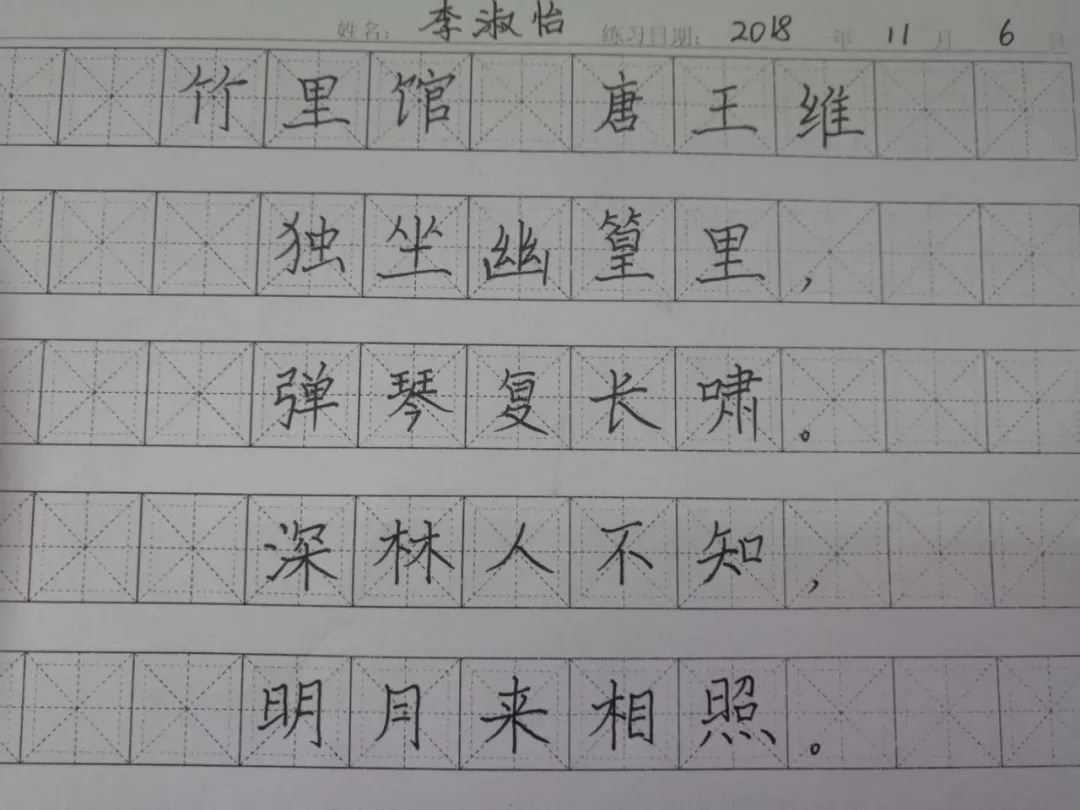 姓名: 李淑怡 练习日期: 2018 年 11 月 6 日
竹里馆 唐王维
独坐幽篁里,
弹琴复长啸。
深林人不知,
明月来相照。